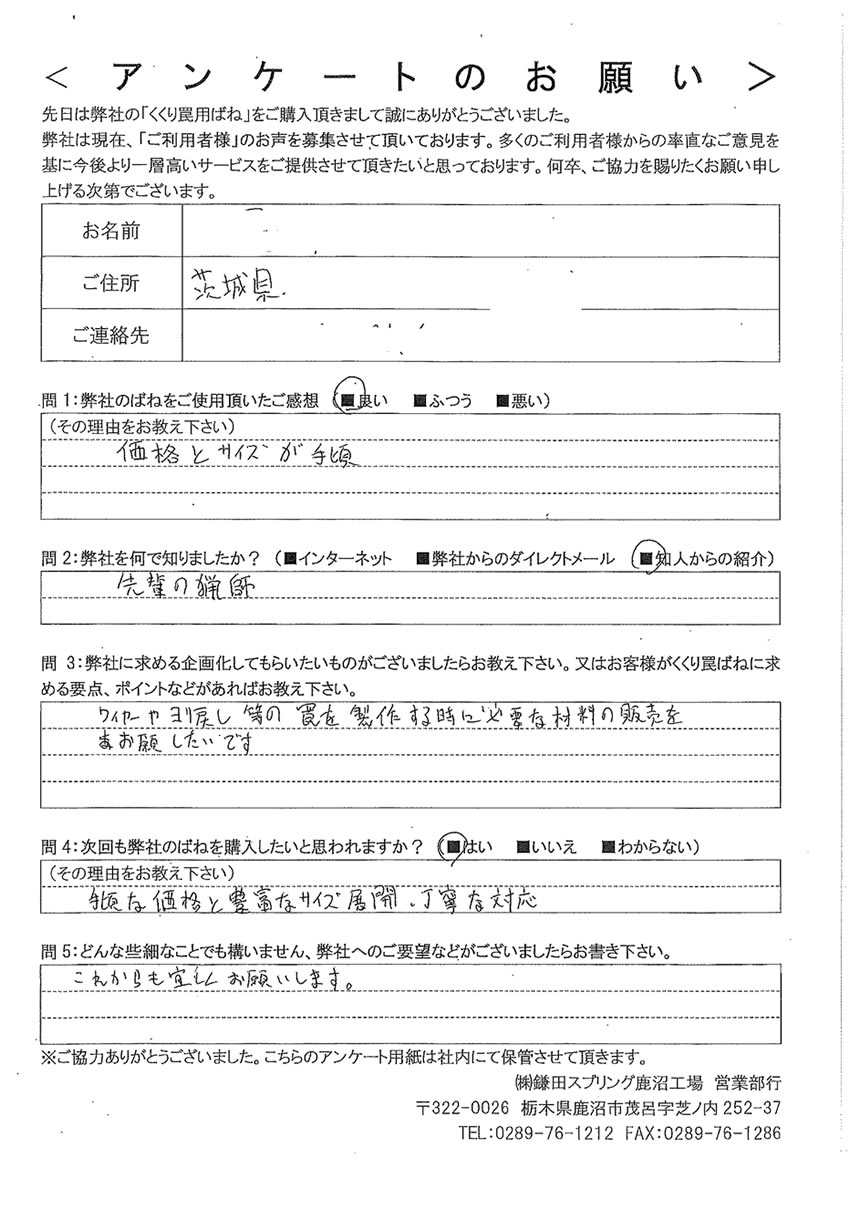 ＜アンケートのお願い＞
先日は弊社の「くくり罠用ばね」をご購入頂きまして誠にありがとうございました。
弊社は現在、「ご利用者様」のお声を募集させて頂いております。多くのご利用者様からの率直なご意見を
基に今後より一層高いサービスをご提供させて頂きたいと思っております。何卒、ご協力を賜りたくお願い申し
上げる次第でございます。
お名前
ご住所 茨城県.
ご連絡先
問1：弊社のばねをご使用頂いたご感想 （■良い ■ふつう ■悪い）
（その理由をお教え下さい）
価格とサイズが手頃
問2：弊社を何で知りましたか？ （■インターネット ■弊社からのダイレクトメール （■知人からの紹介）
先輩の猟師
問 3：弊社に求める企画化してもらいたいものがございましたらお教え下さい。又はお客様がくくり罠ばねに求
める要点、ポイントなどがあればお教え下さい。
ワイヤーやヨリ戻し等の罠を製作する時に必要な材料の販売を
お願したいです
問4：次回も弊社のばねを購入したいと思われますか？ （■はい ■いいえ ■わからない）
（その理由をお教え下さい）
手頃な価格と豊富なサイズ展開、丁寧な対応
問5：どんな些細なことでも構いません、弊社へのご要望などがございましたらお書き下さい。
これからも宜しくお願いします。
※ご協力ありがとうございました。こちらのアンケート用紙は社内にて保管させて頂きます。
㈱鎌田スプリング鹿沼工場 営業部行
〒322-0026 栃木県鹿沼市茂呂字芝ノ内 252-37
TEL:0289-76-1212 FAX:0289-76-1286